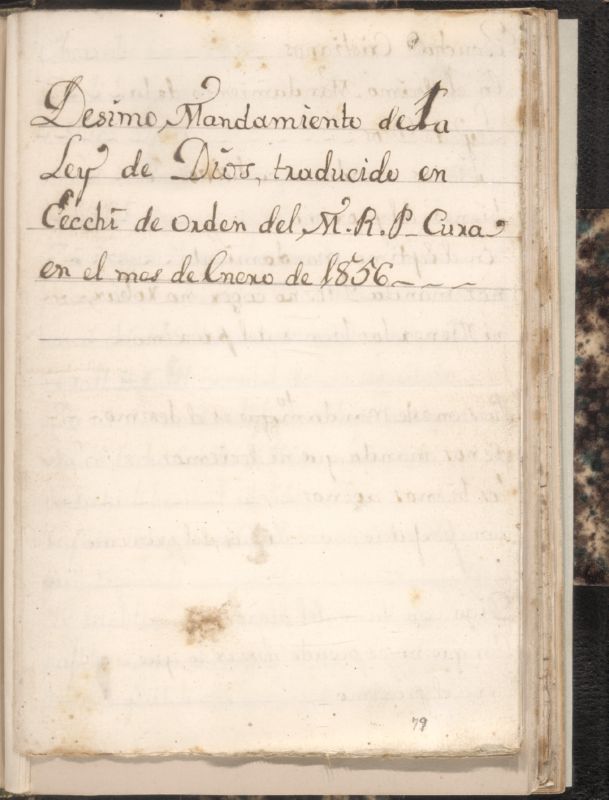 Desimo Mandamiento de la
Ley de Dios, traducido en
Cecchi de orden del M. R. P. Cura
en el mes de Enero de 1856----
79